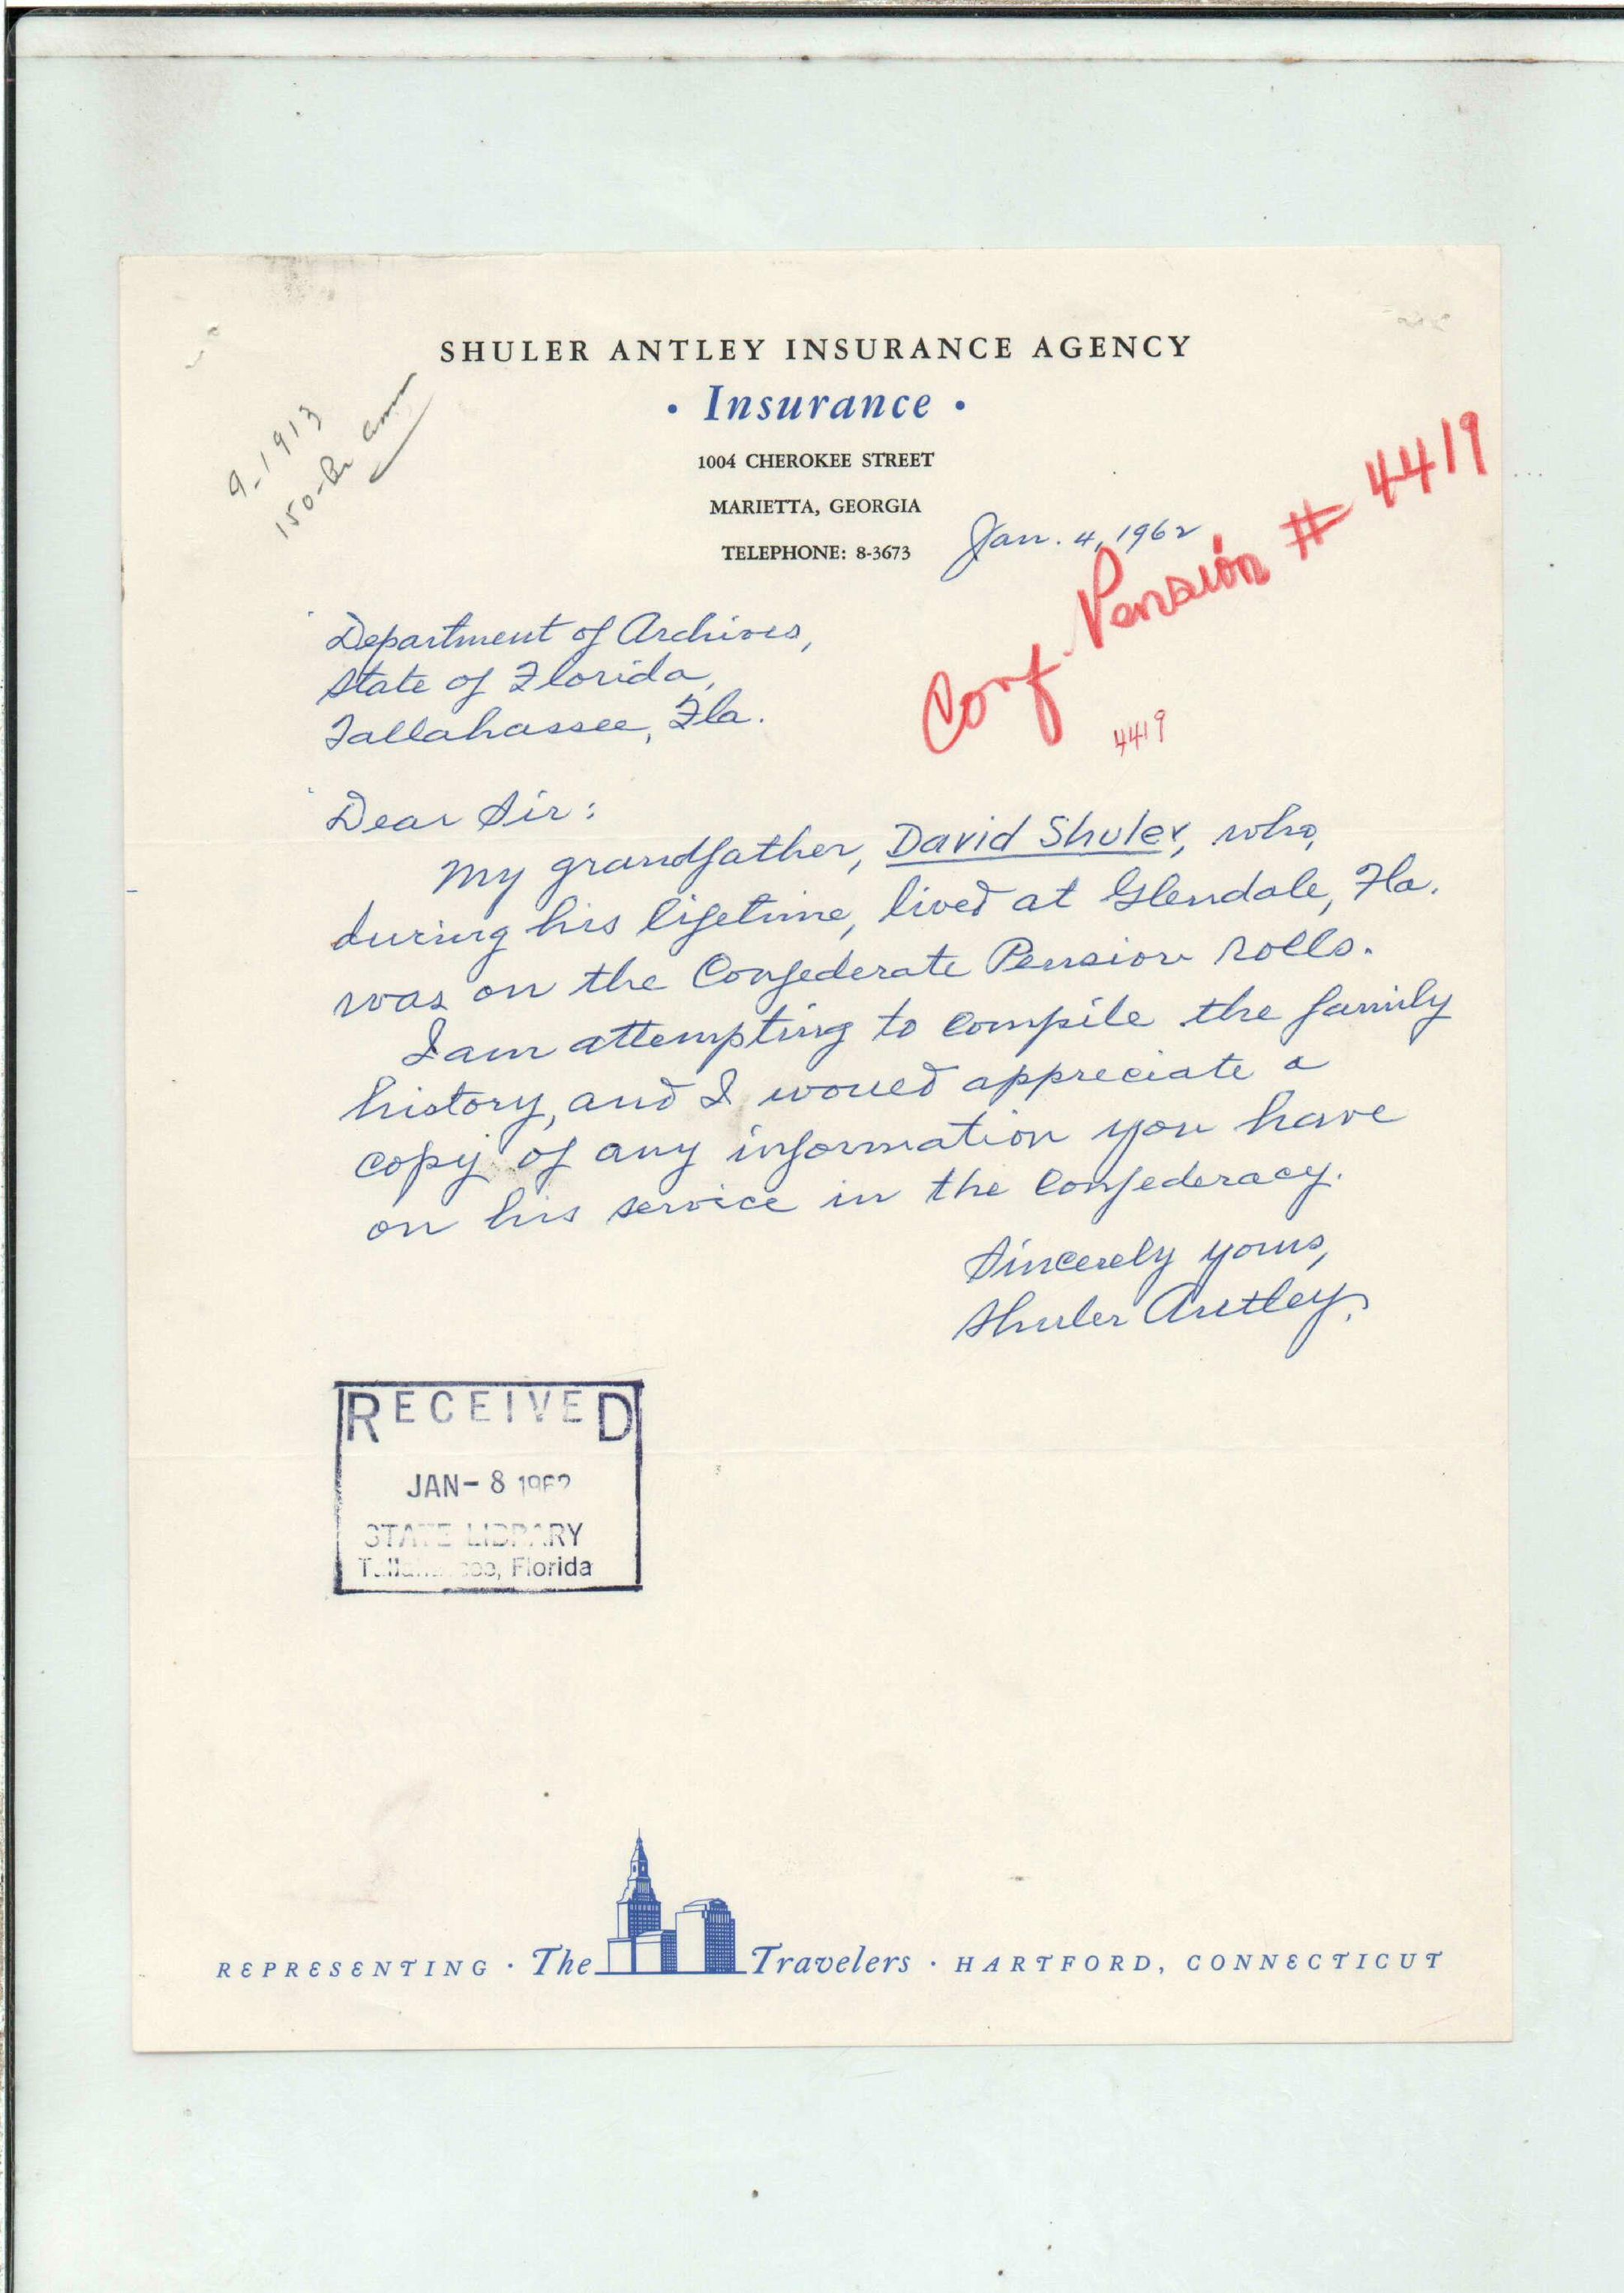 SHULER ANTLEY INSURANCE AGENCY
· Insurance ·
1004 CHEROKEE STREET
MARIETTA, GEORGIA
TELEPHONE: 8-3673
9-1913
150-
Jan. 4, 1962
Conf. Pension # 4419
4419
Department of Archives,
State of Florida,
Tallahassee, Fla.
Dear Sir:
My grandfather, David Shuler, who,
during his lifetime, lived at Glendale, Fla.
was on the Confederate Pension rolls.
I am attempting to compile the family
history, and I would appreciate a
copy of any information you have
on his service in the Confederacy.
Sincerely yours,
Shuler Antley.
RECEIVED
JAN-8 1962
STATE LIBRARY
Tallahassee, Florida
REPRESENTING · The Travelers · HARTFORD, CONNECTICUT